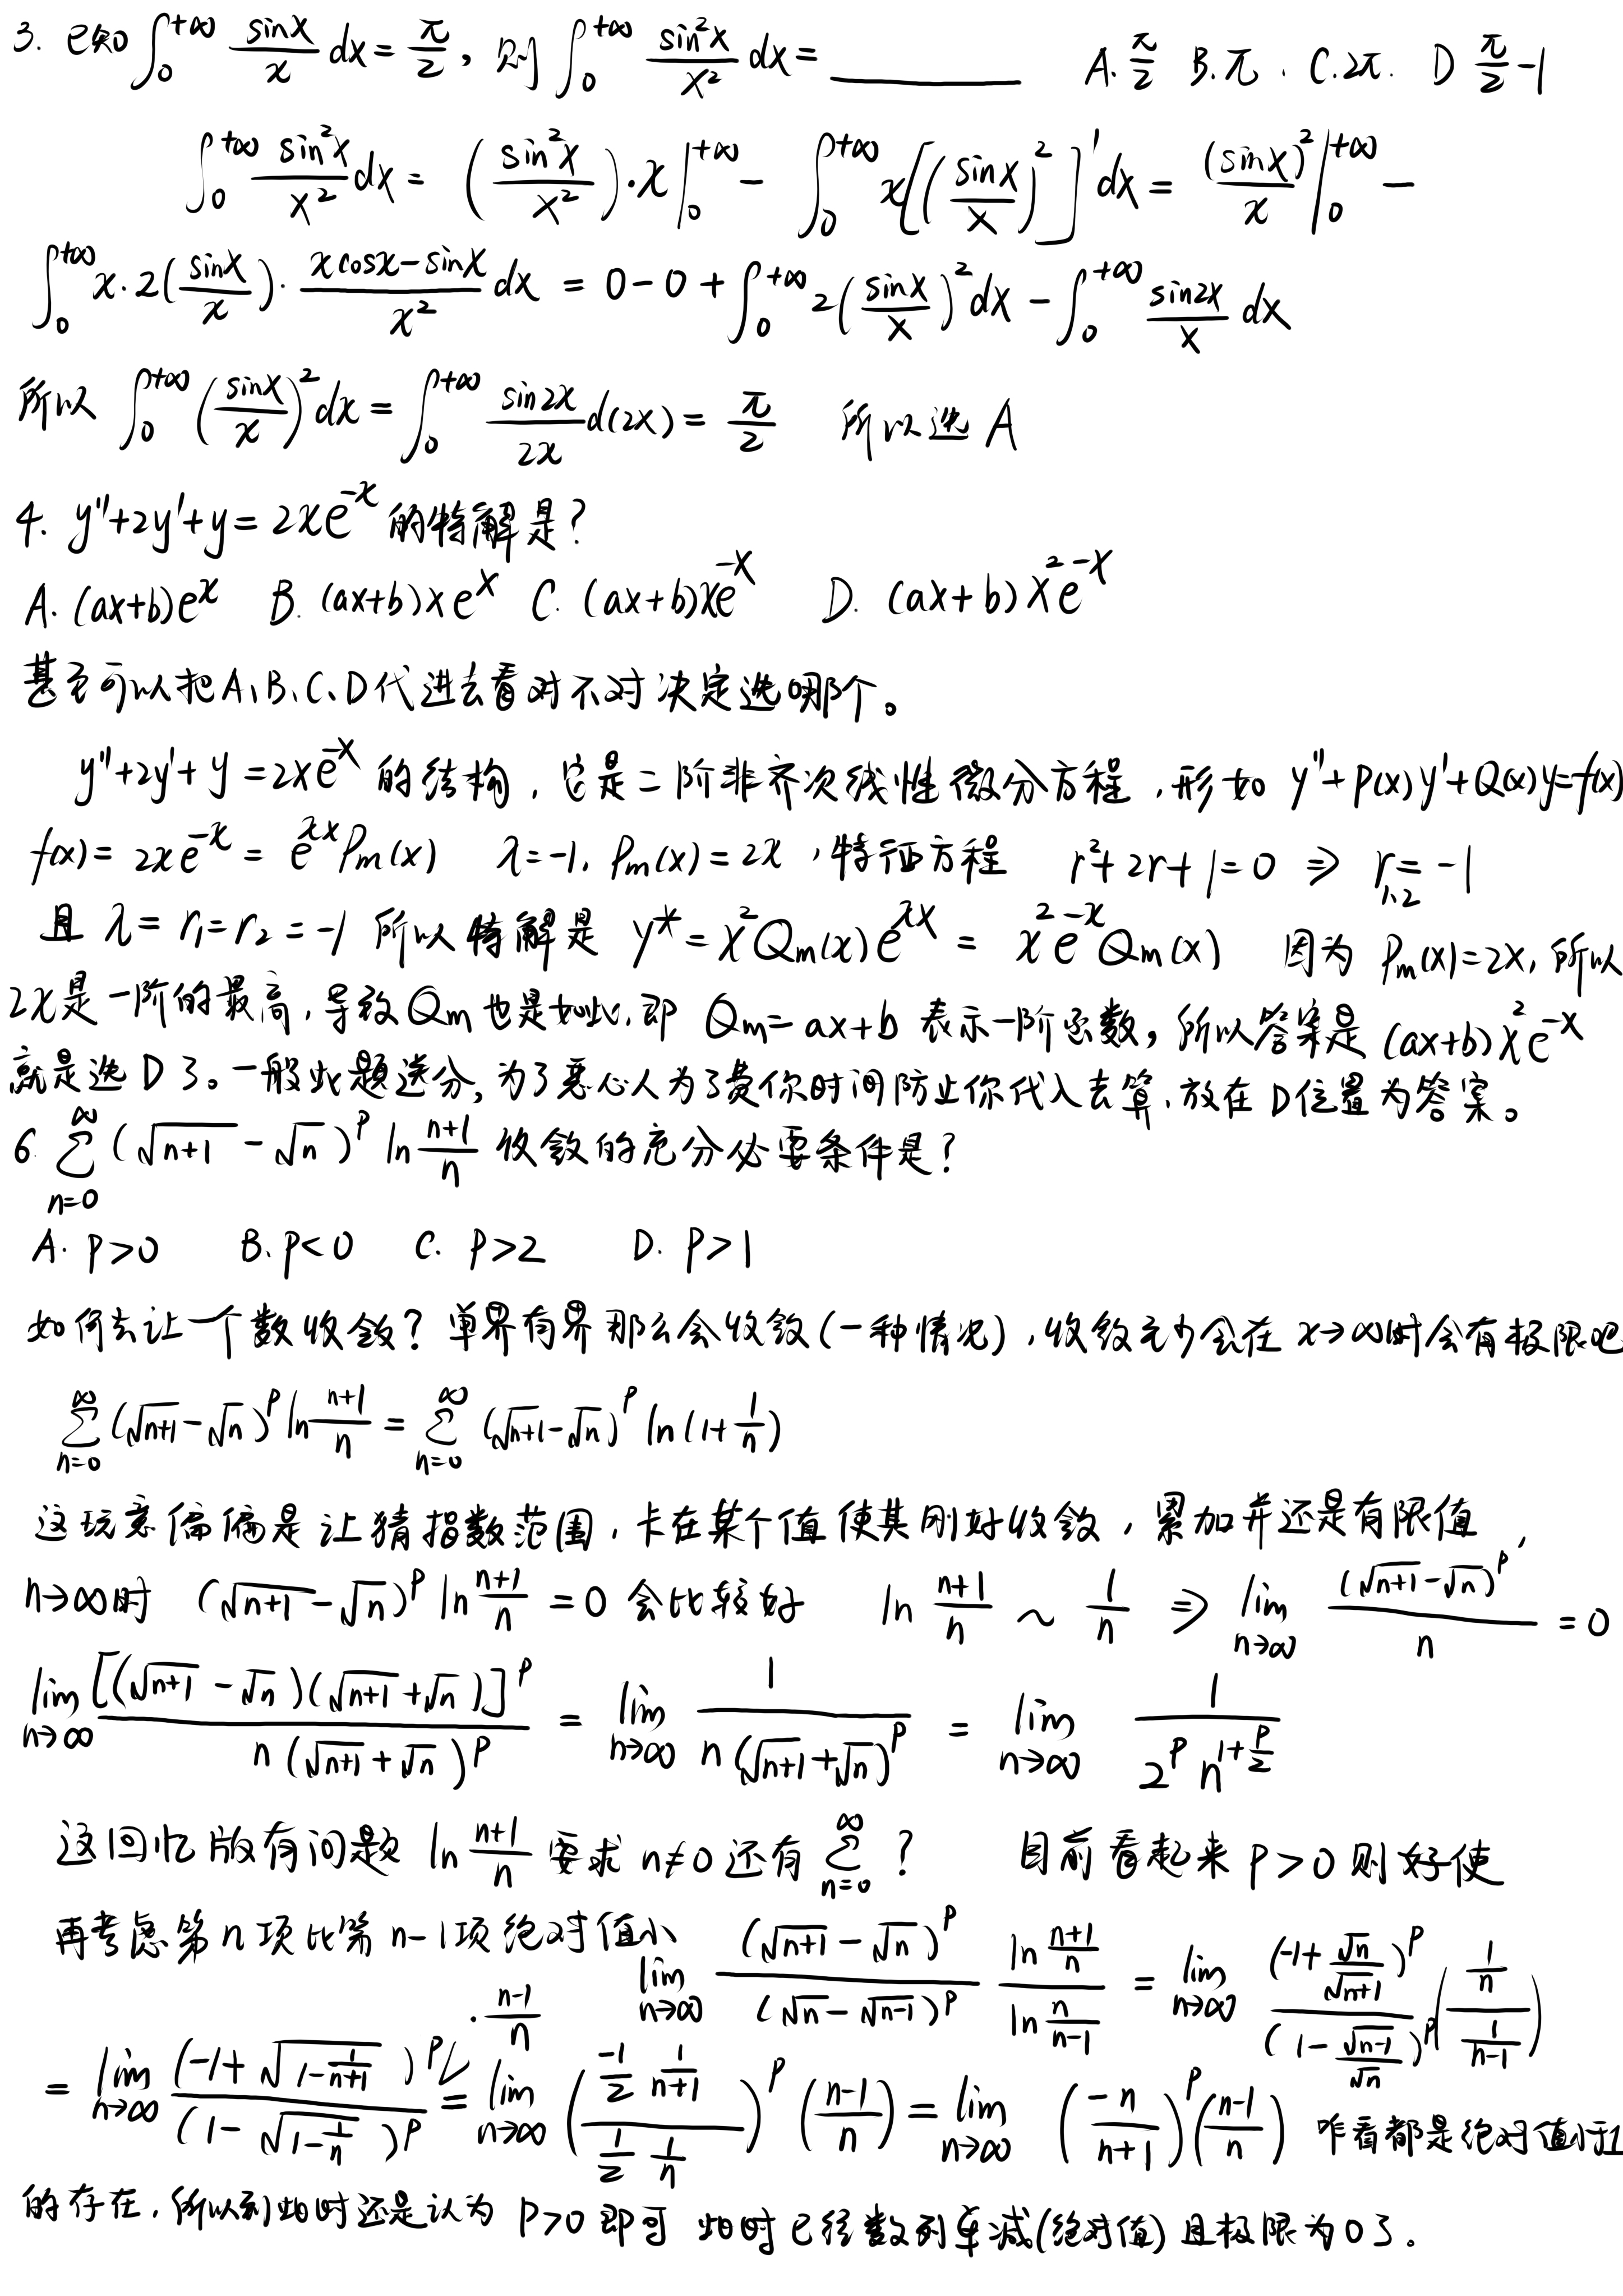 3. 已知 ∫₀^{+∞} sinx/x dx = π/2, 则 ∫₀^{+∞} sin²x/x² dx = ________ A. π/2 B. π. C. 2π. D π/2 -1
∫₀^{+∞} sin²x/x² dx = (sin²x/x²)·x |₀^{+∞} - ∫₀^{+∞} x[(sinx/x)²]' dx = (sinx)²/x |₀^{+∞} -
∫₀^{+∞} x·2(sinx/x)· (xcosx-sinx)/x² dx = 0-0+ ∫₀^{+∞} 2(sinx/x)² dx - ∫₀^{+∞} sin2x/x dx
所以 ∫₀^{+∞} (sinx/x)² dx = ∫₀^{+∞} sin2x/2x d(2x) = π/2 所以选 A
4. y''+2y'+y = 2xe^{-x} 的特解是?
A. (ax+b)e^x B. (ax+b)xe^x C. (ax+b)xe^{-x} D. (ax+b)x²e^{-x}
甚至可以把A、B、C、D代进去看对不对决定选哪个。
y''+2y'+y = 2xe^{-x} 的结构, 它是二阶非齐次线性微分方程, 形如 y''+P(x)y'+Q(x)y=f(x)
f(x) = 2xe^{-x} = e^{λx}Pm(x) λ=-1, Pm(x)=2x, 特征方程 r²+2r+1=0 ⇒ r₁,₂ = -1
且 λ = r₁=r₂ = -1 所以特解是 y* = x²Qm(x)e^{λx} = x²e^{-x}Qm(x) 因为 Pm(x)=2x, 所以
2x是一阶的最高, 导致Qm也是如此, 即 Qm=ax+b 表示一阶函数, 所以答案是 (ax+b)x²e^{-x}
就是选D了。一般此题送分, 为了恶心人为了费你时间防止你代入去算, 放在D位置为答案。
6. ∑_{n=0}^{∞} (√(n+1) - √n)^p ln (n+1)/n 收敛的充分必要条件是?
A. p>0 B. p<0 C. p>2 D. p>1
如何去让一个数收敛? 单界有界那么会收敛(一种情况), 收敛至少会在 x→∞时会有极限吧
∑_{n=0}^{∞} (√(n+1)-√n)^p ln (n+1)/n = ∑_{n=0}^{∞} (√(n+1)-√n)^p ln(1+1/n)
这玩意偏偏是让猜指数范围, 卡在某个值使其刚好收敛, 累加并还是有限值,
n→∞时 (√(n+1)-√n)^p ln (n+1)/n = 0 会比较好 ln (n+1)/n ~ 1/n ⇒ lim_{n→∞} (√(n+1)-√n)^p / n = 0
lim_{n→∞} [(√(n+1)-√n)(√(n+1)+√n)]^p / n(√(n+1)+√n)^p = lim_{n→∞} 1 / n(√(n+1)+√n)^p = lim_{n→∞} 1 / 2^p n^{1+p/2}
这回忆版有问题 ln (n+1)/n 要求 n≠0 还有 ∑_{n=0}^{∞} ? 目前看起来 p>0 则好使
再考虑第n项比第n-1项绝对值小 lim_{n→∞} (√(n+1)-√n)^p / (√n-√(n-1))^p · ln((n+1)/n) / ln(n/(n-1)) = lim_{n→∞} (-1+√n/√(n+1))^p / (1-√(n-1)/√n)^p ((1/n) / (1/(n-1)))
= lim_{n→∞} (-1+√(1-1/(n+1)))^p / (1-√(1-1/n))^p · (n-1)/n = lim_{n→∞} ((-1/2 · 1/(n+1)) / (1/2 · 1/n))^p ((n-1)/n) = lim_{n→∞} (-n/(n+1))^p ((n-1)/n) 咋看都是绝对值小于1
的存在, 所以到此时还是认为 p>0 即可 此时已经数列单减(绝对值)且极限为0了。